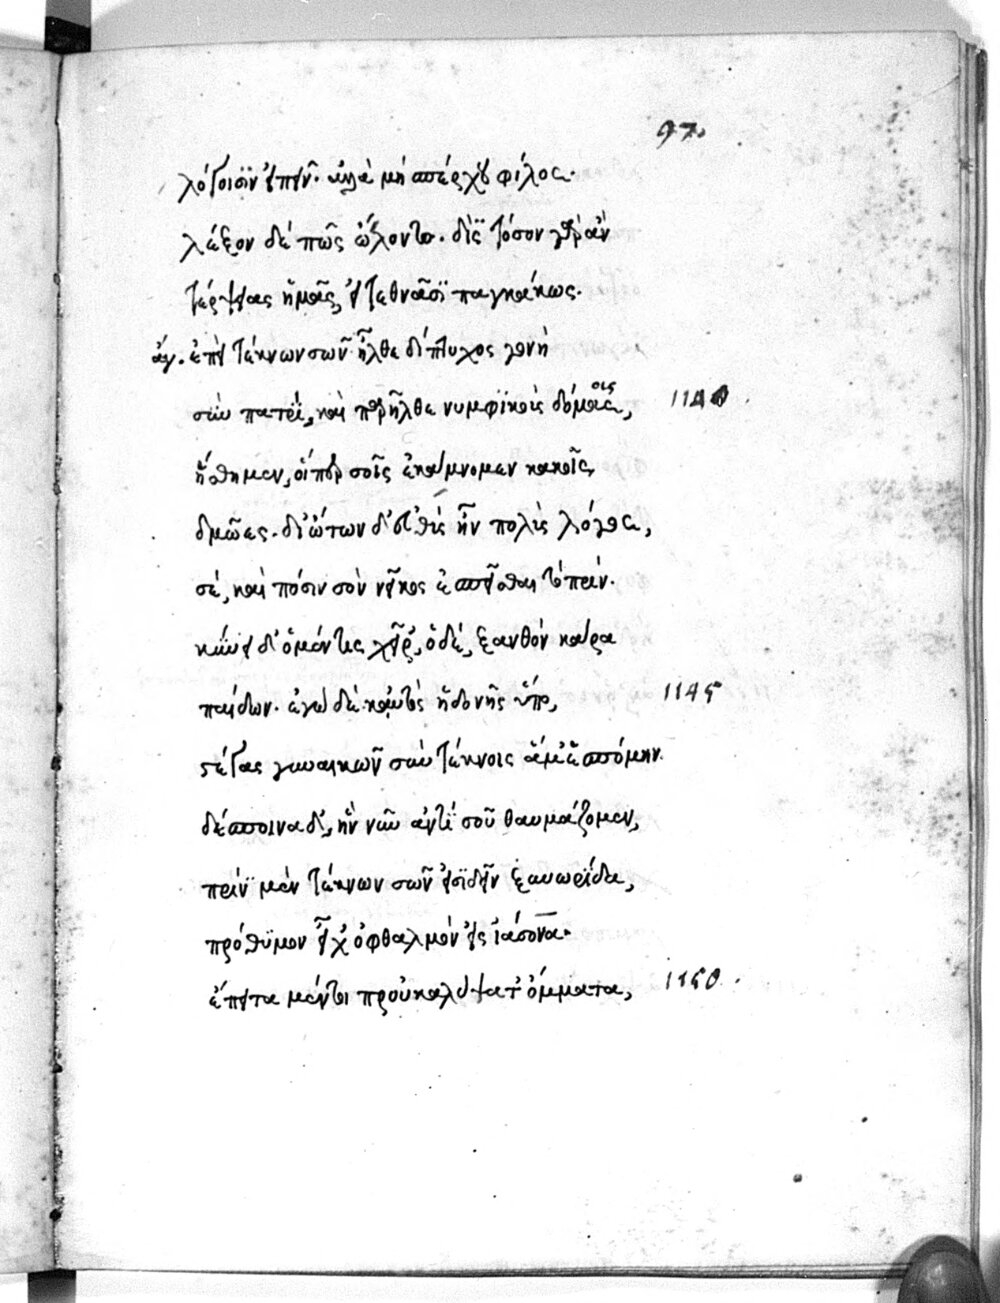 97.
λόγοισιν εἰπεῖν. ἀλλὰ μὴ σπέρχου φίλος.
λέξον δέ πῶς ὤλοντο. δὶς τόσον γὰρ ἂν
τέρψειας ἡμᾶς, εἰ τεθνᾶσι παγκάκως.
ἄγ. ἐπεὶ τέκνων σῶν ἦλθε δίπτυχος γονὴ
σὺν πατρί, καὶ παρῆλθε νυμφικοὺς δόμους, 1140
ἥσθημεν, οἵπερ σοῖς ἐκάμνομεν κακοῖς,
δμῶες. δι' ὤτων δ' εὐθὺς ἦν πολὺς λόγος,
σέ, καὶ πόσιν σὸν νεῖκος ἐσπεῖσθαι τὸ πρίν.
κύνει δ' ὁ μέν τις χεῖρ', ὁ δέ, ξανθὸν κάρα
παίδων. ἐγὼ δὲ καὐτὸς ἡδονῆς ὕπο, 1145
στέγας γυναικῶν σὺν τέκνοις ἅμ' ἑσπόμην.
δέσποινα δ', ἣν νῦν ἀντὶ σοῦ θαυμάζομεν,
πρὶν μὲν τέκνων σῶν εἰσιδεῖν ξυνωρίδα,
πρόθυμον εἶχ' ὀφθαλμὸν εἰς ἰάσονα.
ἔπειτα μέντοι προὐκαλύψατ' ὄμματα, 1150.